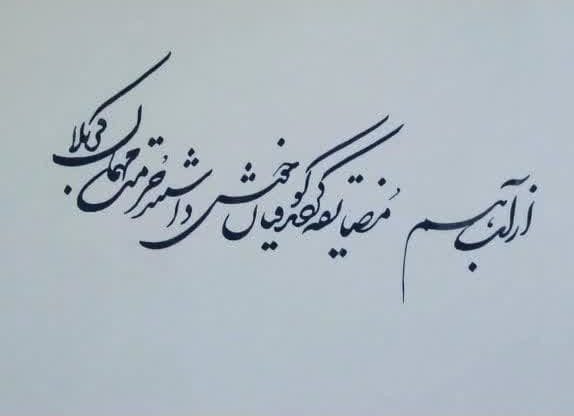 از آب هم مضایقه کردند کوفیان خوش داشتند حرمت مهمان کربلا